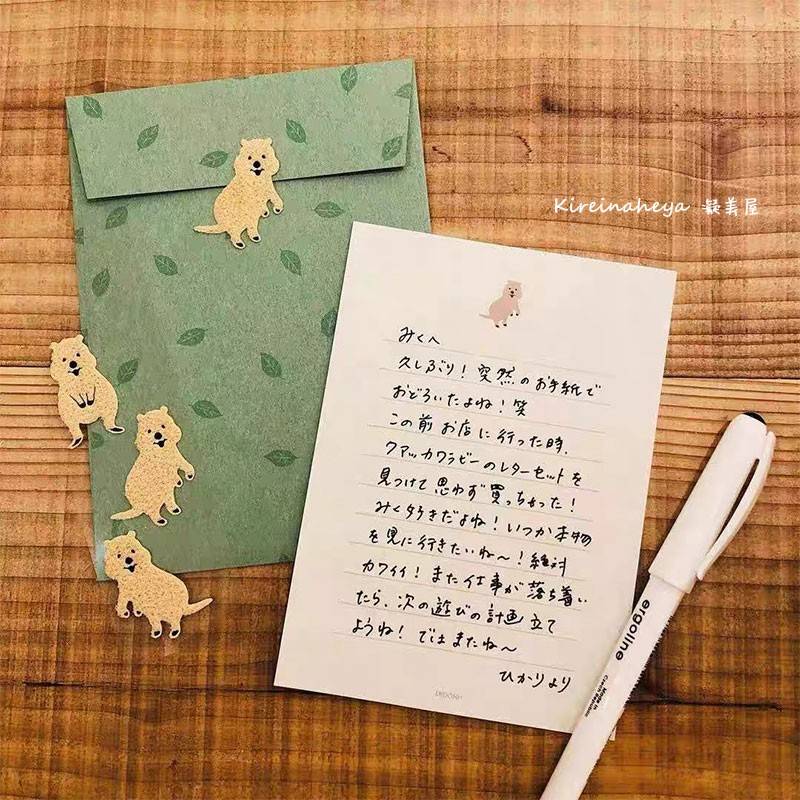 Kireinaheya 凝美屋
みくへ
久しぶり！突然のお手紙で
おどろいたよね！笑
この前お店に行った時、
クァッカワラビーのレターセットを
見つけて思わず買っちゃった！
みく好きだよね！いつか本物
を見に行きたいね〜！絶対
カワイイ！また仕事が落ち着い
たら、次の遊びの計画立て
ようね！ではまたね〜
ひかりより
ergoline
Made in
Czech Republic